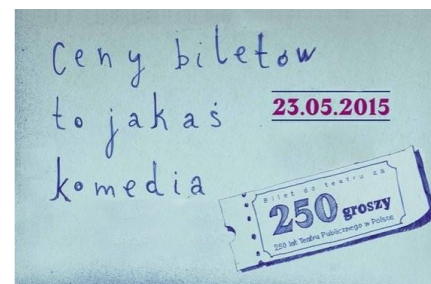 Ceny biletow
to jakaś
komedia
23.05.2015
Bilet do teatru za
250 groszy
250 lat Teatru Publicznego w Polsce